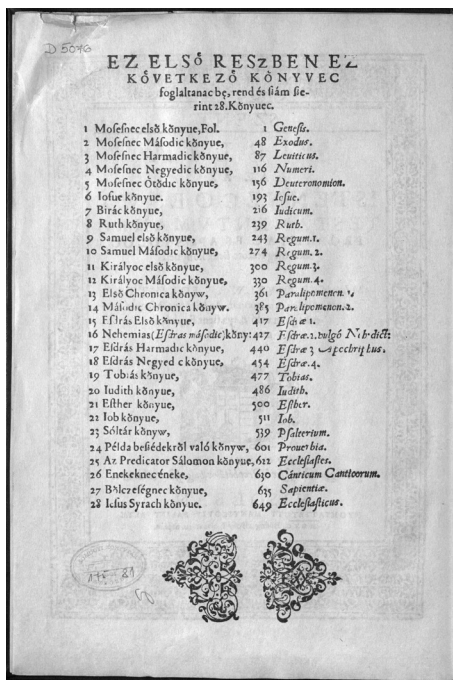 D 5076
EZ ELSŐ RESzBEN EZ
KÖVETKEZŐ KÖNYVEC
foglaltanac bę, rend és ſzám ſze-
rint 28. Kőnyuec.
1 Moſeſnec elsȍ kőnyue, Fol. 1 Geneſis.
2 Moſeſnec Máſodic kőnyue, 48 Exodus.
3 Moſeſnec Harmadic kőnyue, 87 Leuiticus.
4 Moſeſnec Negyedic kőnyue, 116 Numeri.
5 Moſeſnec Ötȍdic kőnyue, 156 Deuteronomion.
6 Ioſue kőnyue. 193 Ieſue.
7 Birác kőnyue, 216 Iudicum.
8 Ruth kőnyue, 239 Ruth.
9 Samuel elsȍ kőnyue, 243 Regum.1.
10 Samuel Máſodic kőnyue, 274 Regum.2.
11 Királyoc elsȍ kőnyue, 300 Regum.3.
12 Királyoc Máſodic kőnyue, 330 Regum.4.
13 Elsȍ Chronica kőnyw, 361 Paralipomenon.
14 Máſodic Chronica kőnyw. 385 Paralipomenon.2.
15 Eſdrás Elsȍ kőnyue, 417 Eſdræ 1.
16 Nehemias (Eſdras máſodic) kőny: 427 Eſdræ.2. vulgó Ni dict:
17 Eſdrás Harmadic kőnyue, 440 Eſdræ 3 Apochriphus.
18 Eſdrás Negyedic kőnyue, 454 Eſdræ.4.
19 Tobiás kőnyue, 477 Tobias.
20 Iudith kőnyue, 486 Iudith.
21 Eſther kőnyue, 500 Eſther.
22 Iob kőnyue, 511 Iob.
23 Sóltár kőnyw, 539 Pſalterium.
24 Példa beſzédekrȍl való kőnyw, 601 Prouerbia.
25 Az Predicator Sálomon kőnyue, 622 Eccleſiaſtes.
26 Enekeknec éneke, 630 Cánticum Canticorum.
27 Bȍlczeſégnec kőnyue, 635 Sapientiæ.
28 Ieſus Syrach kőnyue. 649 Eccleſiaſticus.